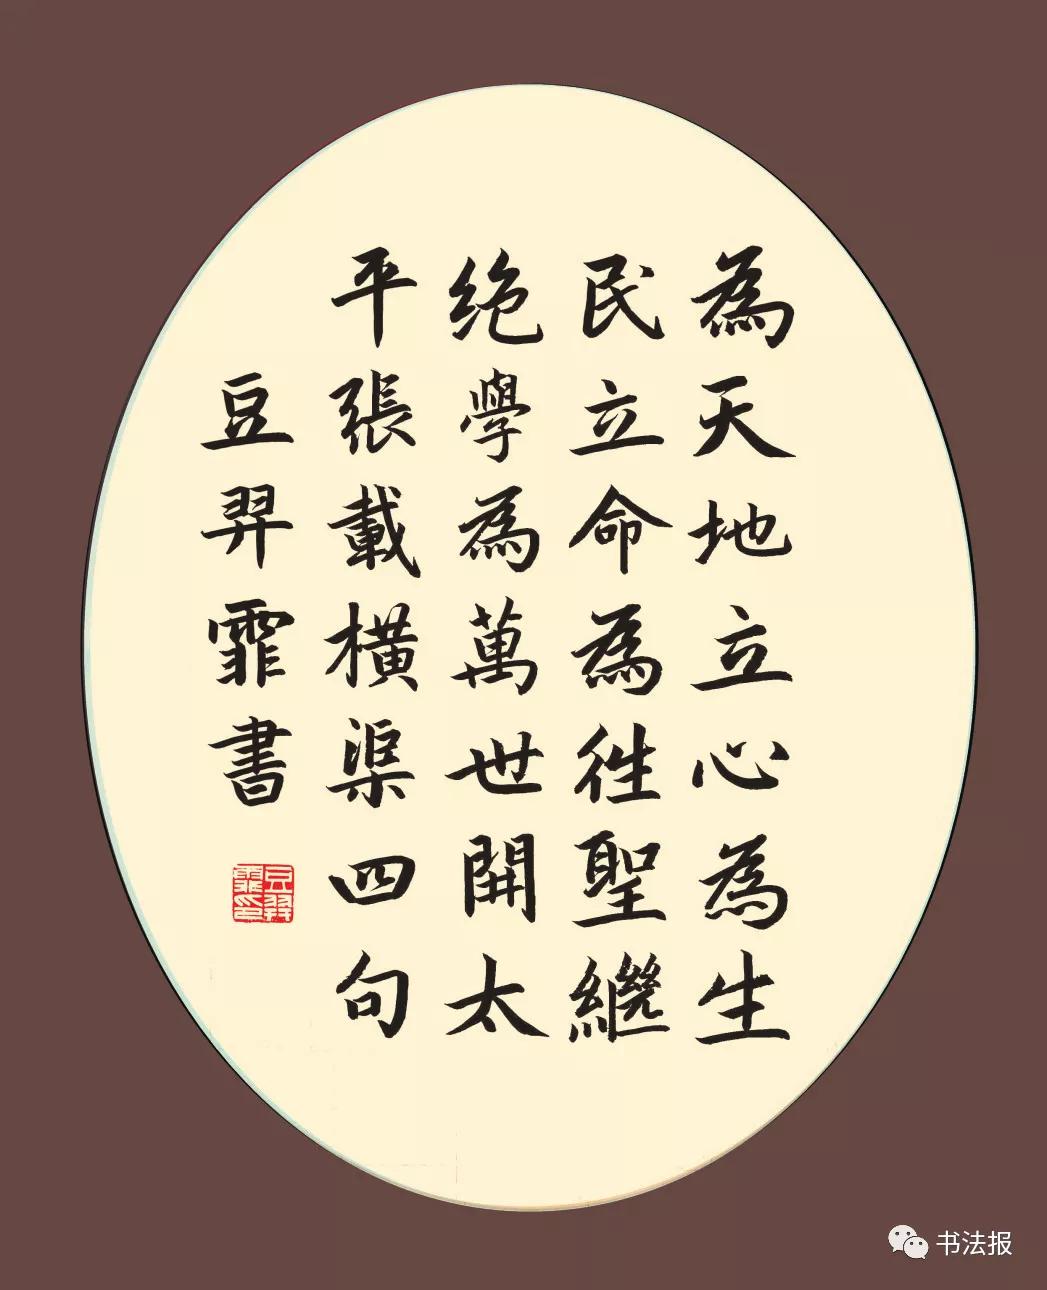 為天地立心為生
民立命為徃聖繼
绝學為萬世開太
平張載橫渠四句
豆羿霏書
豆羿霏印
书法报